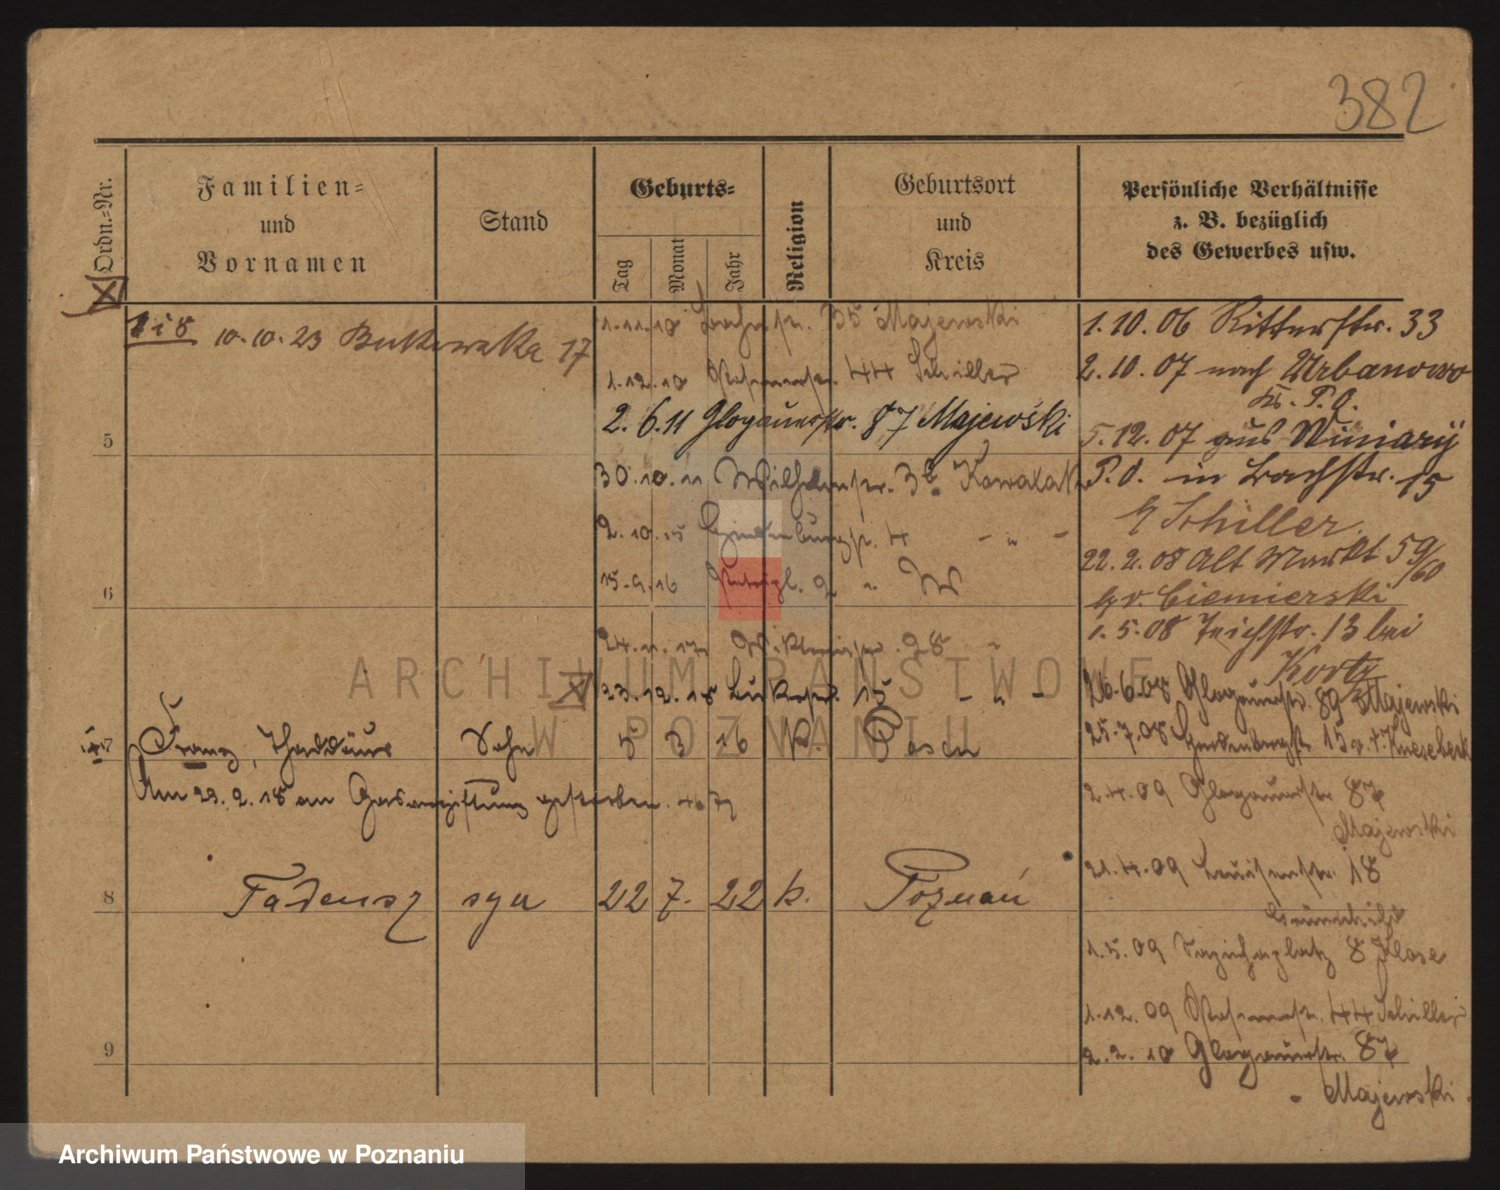 382
Ordn.-Nr.
Familien-
und
Vornamen
Stand
Geburts-
Tag
Monat
Jahr
Religion
Geburtsort
und
Kreis
Persönliche Verhältnisse
z. B. bezüglich
des Gewerbes usw.
1 i 8 10.10.23 Bukowska 17
1.11.10 35 Majewski
1.12.10 44 Schiller
2.6.11 Glogauerstr. 87 Majewski
30.10.11 Wilhelmstr.
2.10.15 4 - " -
15.9.16 2 "
28 "
23.12.18 15 - " -
1.10.06 Ritterstr. 33
2.10.07 nach Urbanowo
Kr. P. O.
5.12.07 aus Winiary
P. O. in Bachstr. 15
b/ Schiller
22.2.08 Alt Markt 59/60
b/ v. Ciemierski
1.5.08 Teichstr. 13 bei
26.6.08 Glogauerstr. 89 Majewski
25.7.08 15 v. d. Knesebeck
2.4.09 Glogauerstr. 87
Majewski
21.4.09 Luisenstr. 18
1.5.09 Sapiehaplatz 8 Klose
1.12.09 44 Schiller
2.2.10 Glogauerstr. 87
- Majewski
5
6
7 Franz, Thaddäus Sohn 5 3 16 k. Posen
Am 22.2.18 an Gasvergiftung gestorben.
8 Tadeusz syn 22 7. 22 k. Poznań
9
ARCHIWUM PAŃSTWOWE
W POZNANIU
Archiwum Państwowe w Poznaniu